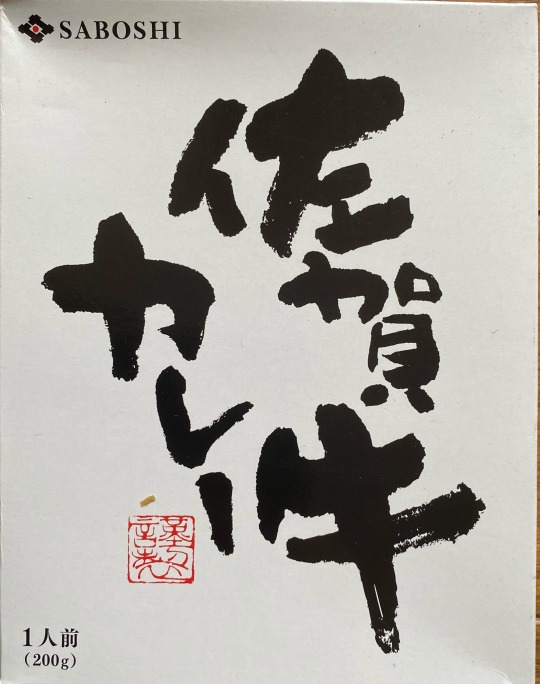 SABOSHI
佐賀牛
カレー
謹製
1人前
(200g)